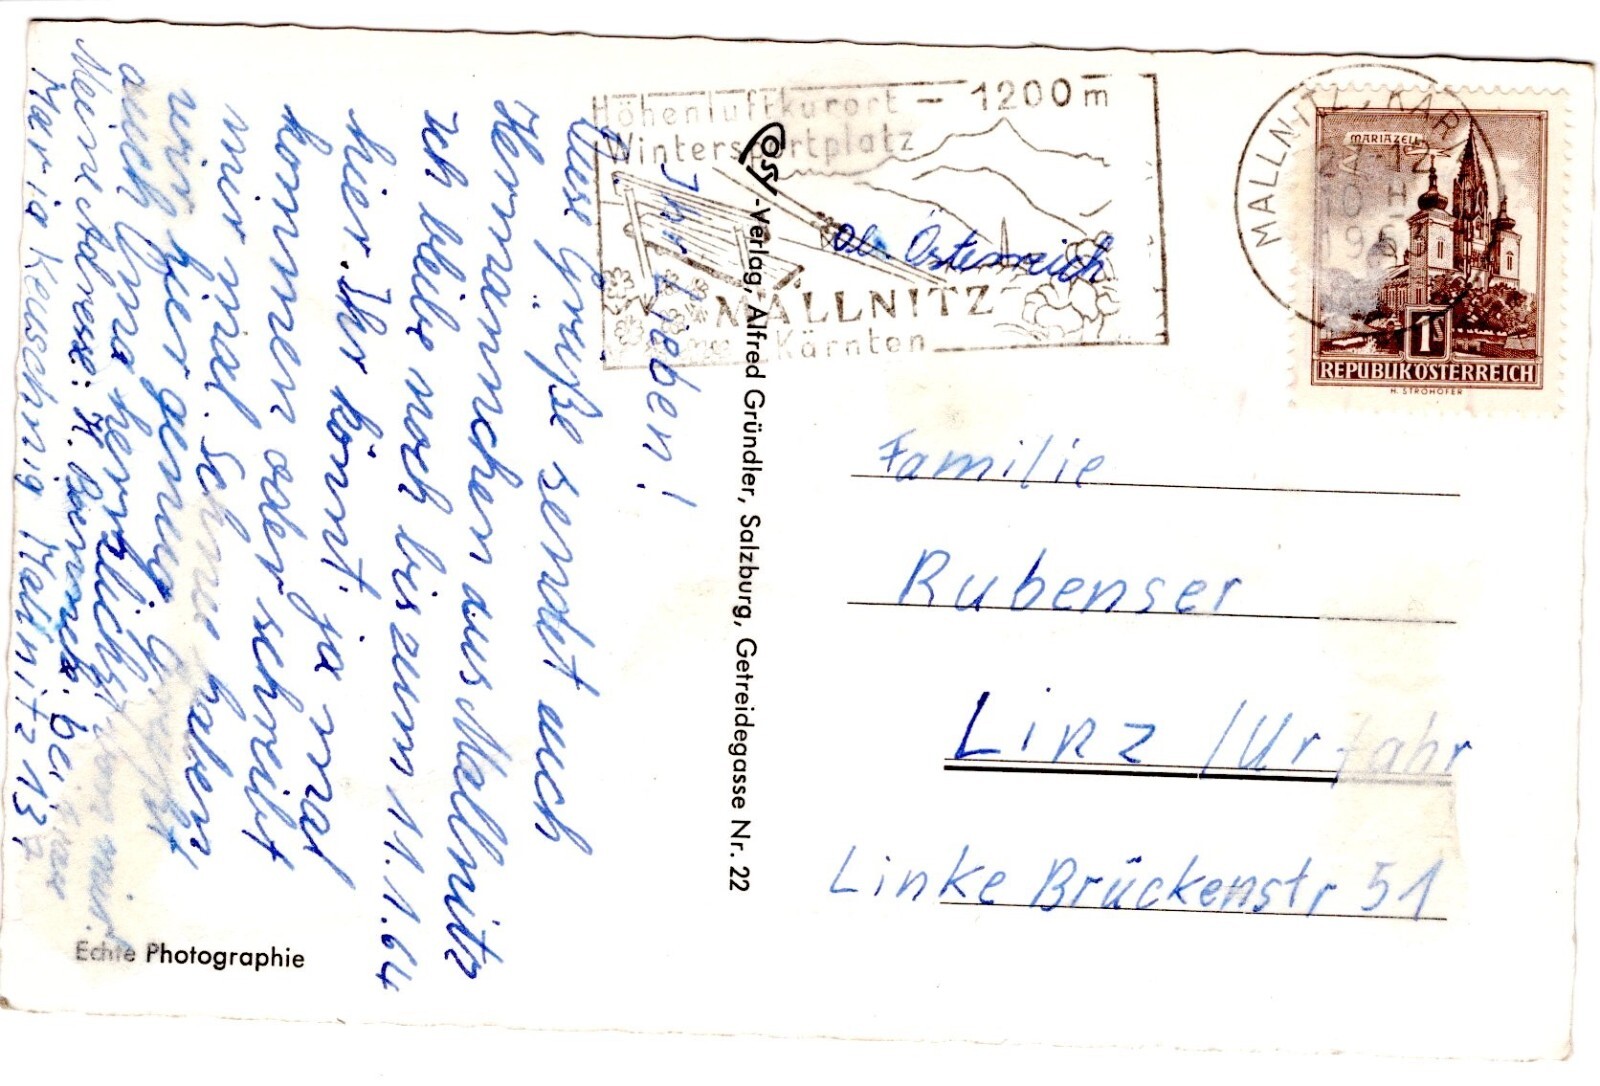 Höhenluftkurort - 1200 m
Wintersportplatz
MALLNITZ
Kärnten
MALLNITZ, KÄR
MARIAZELL
1S
REPUBLIK ÖSTERREICH
H. STROHOFER
Ob. Österreich
Familie
Rubenser
Linz / Urfahr
Linke Brückenstr 51
Cosy-Verlag, Alfred Gründler, Salzburg, Getreidegasse Nr. 22
Ihr Lieben!
Viese Grüße sendet euch
Hermännchen aus Mallnitz
Ich bleibe noch bis zum 11.1.64
hier. Ihr könnt ja mal
kommen oder schreibt
mir mal. Schnee haben
wir hier genug
auch Oma herzlichst von mir.
Meine Adresse: H. bei Frau
Maria Keuschnig Malnitz 137
Echte Photographie